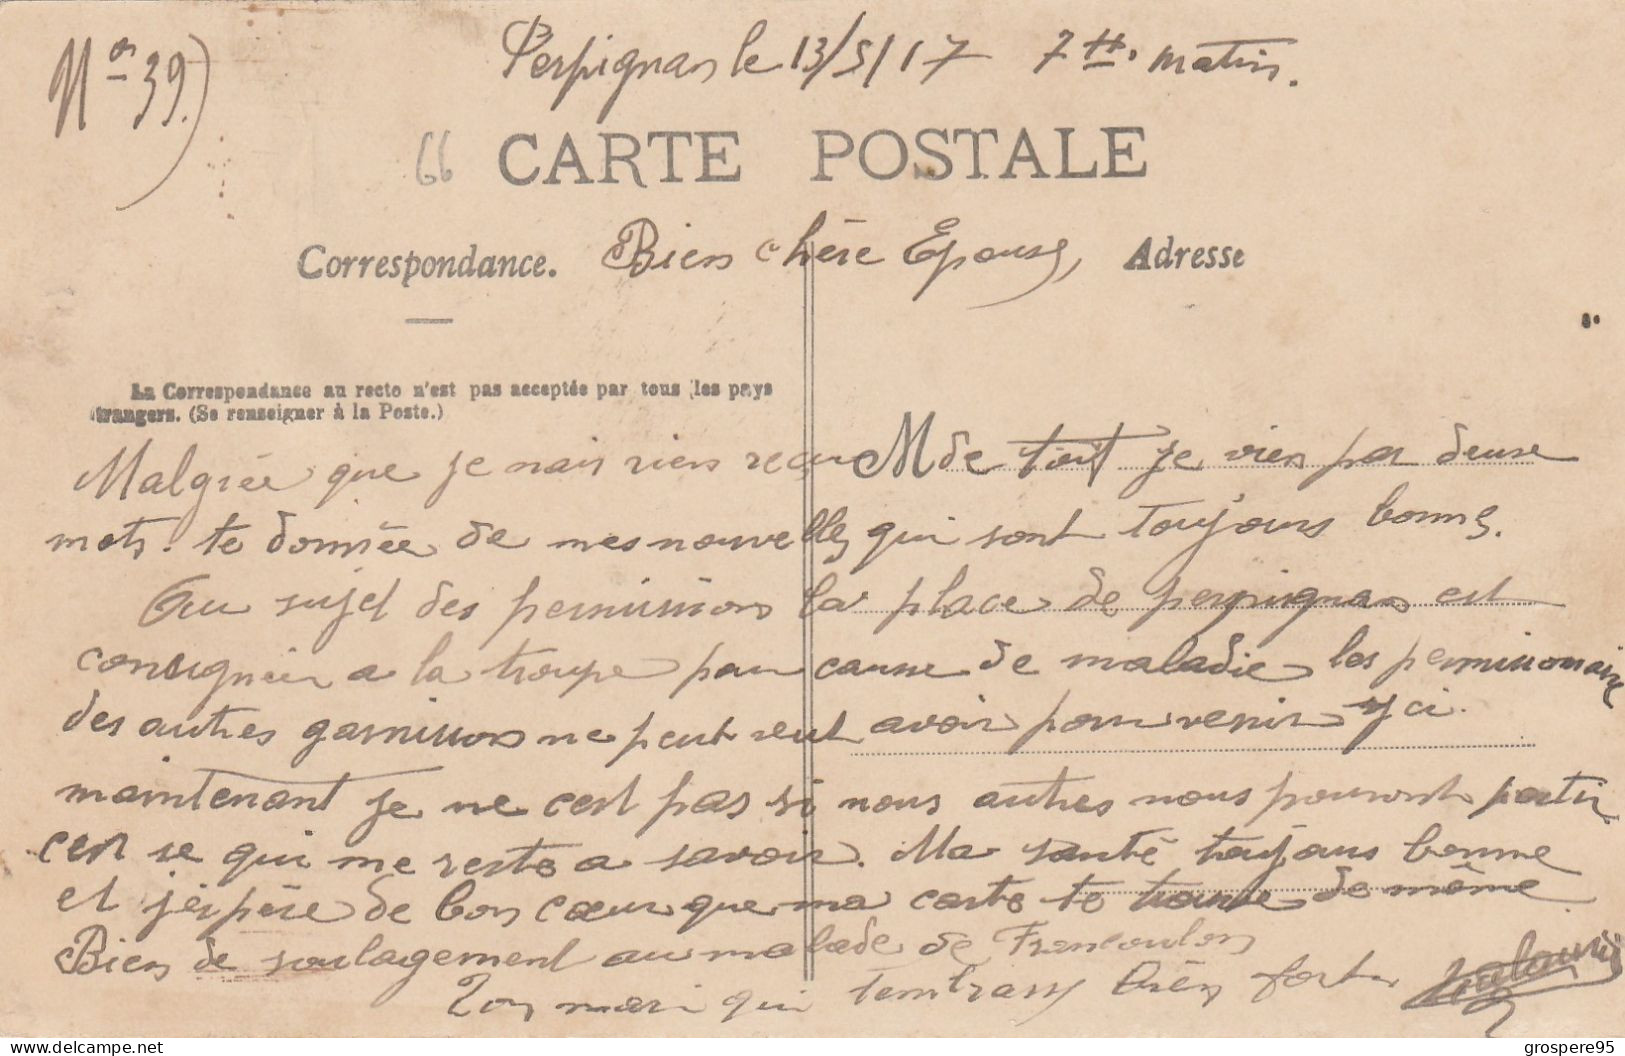 No 39)
Perpignan le 13/5/17 7 tt. matin.
66
CARTE POSTALE
Correspondance.
Bien chère Epouse,
Adresse
La Correspondance au recto n'est pas acceptée par tous les pays
étrangers. (Se renseigner à la Poste.)
Malgrée que je nais rien reçu de toit je vien par deuse
mots. te donnée de mes nouvelles qui sont toujours bonne.
Au sujet des permission la place de perpignan est
consignéir a la troupe pour cause de maladie les permissionnaire
des autres garnisson ne peut seut avoir pour venir yci.
maintenant je ne cest pas si nous autres nous pouront partir
cest se qui me reste a savoir. Ma santé toujours bonne
et j'éspére de bon cœur que ma carte te trouve de même
Bien de soulagement au malade de Froncoulon
Ton mari qui tembrass bien fort
grospere95